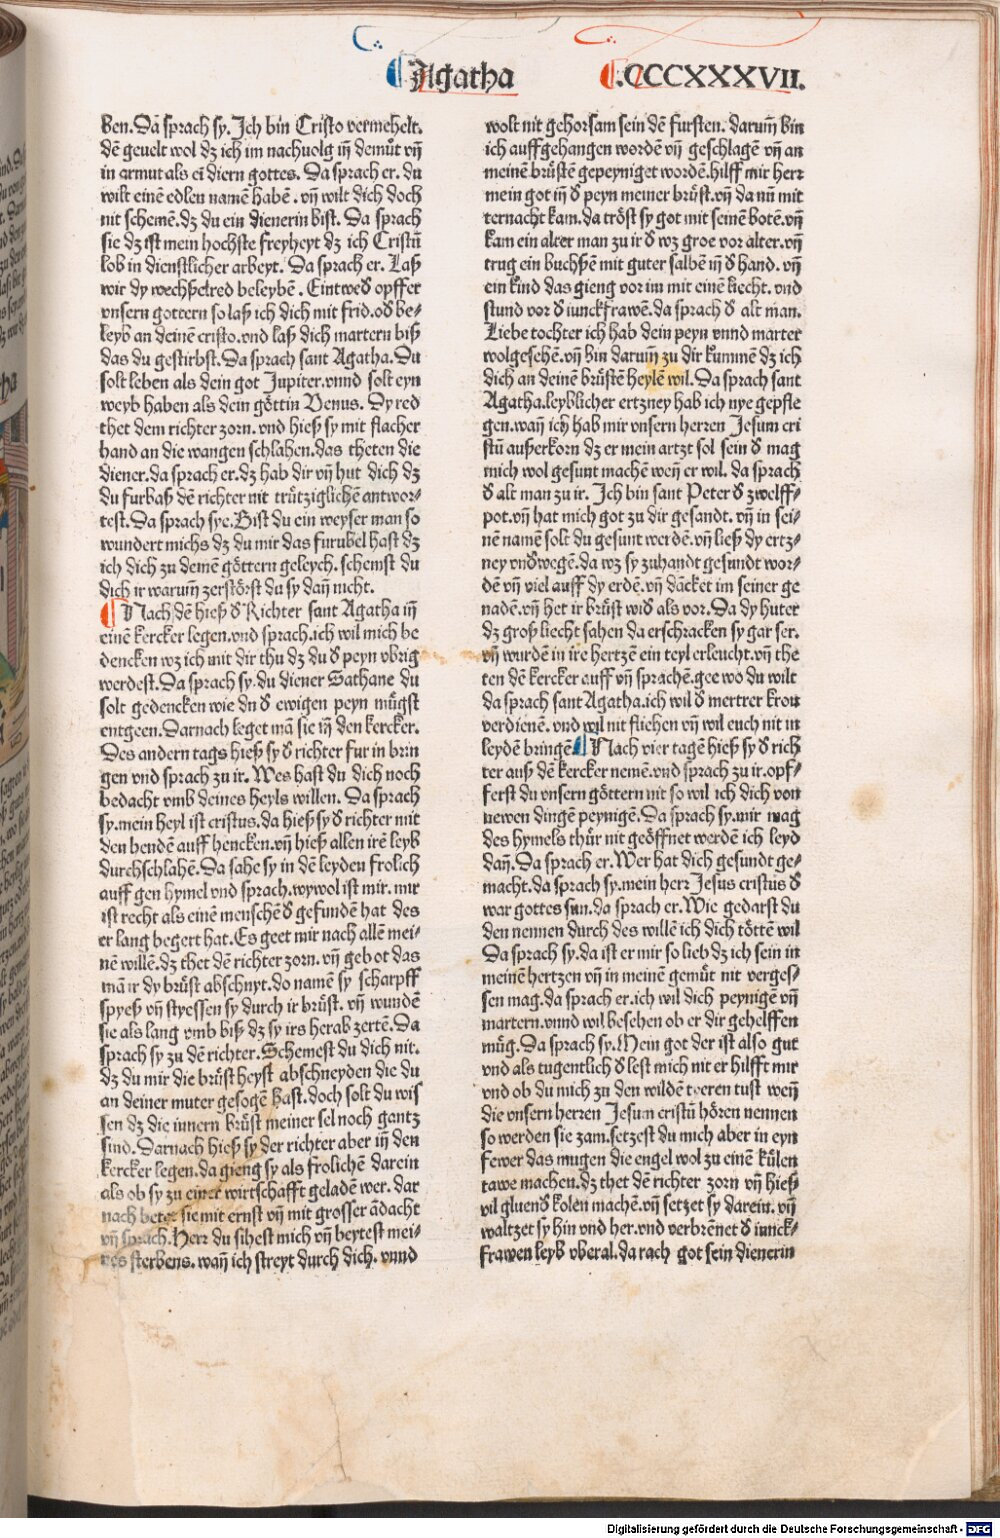 Agatha .CCCXXXVII.
ben. Da sprach sy. Ich bin Cristo vermehelt.
dē gevelt wol dz ich im nachuolg iñ demůt vñ
in armut als ei diern gottes. Da sprach er. du
wilt einē edlen namē habē. vñ wilt dich doch
nit schemē. dz du ein dienerin bist. Da sprach
sie dz ist mein hochste freyheyt dz ich Cristū
lob in dienstlicher arbeyt. Da sprach er. Laß
wir dy wechßelred beleyben. Eintwed opffer
vnsern gottern so laß ich dich mit frid. oď be⸗
leyb an deinē cristo. vnd laß dich martern biß
das du gestirbst. Da sprach sant Agatha. Du
solt leben als dein got Jupiter. vnnd solt eyn
weyb haben als dein göttin Venus. Dy red
thet dem richter zorn. vnd hieß sy mit flacher
hand an die wangen schlahen. das theten die
diener. da sprach er. dz hab dir vñ hut dich dz
du furbaß dē richter nit trůtziglichē antwor⸗
test. Da sprach sye. Bist du ein weyser man so
wundert michs dz du mir das furubel hast dz
ich dich zu deinē göttern geleych. schemst du
dich ir warum̄ zerstörst du sy dañ nicht.
Nach dē hieß ď Richter sant Agatha iñ
einē kercker legen. vnd sprach. ich wil mich be
dencken wz ich mit dir thu dz du ď peyn vbrig
werdest. Da sprach sy. du diener Sathane du
solt gedencken wie du ď ewigen peyn můgst
entgeen. Darnach leget mā sie iñ den kercker.
Des andern tags hieß sy ď richter fur in brin
gen vnd sprach zu ir. Wes hast du dich noch
bedacht vmb deines heyls willen. Da sprach
sy. mein heyl ist cristus. da hieß sy ď richter mit
den hendē auff hencken. vñ hieß allen irē leyb
durchschlahē. Da sahe sy in dē leyden frolich
auff gen hymel vnd sprach. wywol ist mir. mir
ist recht als einē menschē ď gefundē hat des
er lang begert hat. Es geet mir nach allē mei⸗
nē willē. dz thet dē richter zorn. vñ gebot das
mā ir dy brůst abschnyt. do namē sy scharpff
spyeß vñ styessen sy durch ir brůst. vñ wundē
sie als lang vmb biß dz sy irs herab zertē. Da
sprach sy zu dē richter. Schemest du dich nit.
dz du mir die brůst heyst abschneyden die du
an deiner muter gesogē hast. doch solt du wis
sen dz die innern brůst meiner sel noch gantz
sind. Darnach hieß sy der richter aber iñ den
kercker legen. da gieng sy als frolichē darein
als ob sy zu einer wirtschafft geladē wer. dar
nach betet sie mit ernst vñ mit grosser ādacht
vñ sprach. Herr du sihest mich vñ beytest mei⸗
nes sterbens. wañ ich streyt durch dich. vnnd
wolt nit gehorsam sein dē fursten. darum̄ bin
ich auffgehangen wordē vñ geschlagē vñ an
meinē brůstē gepeyniget wordē. hilff mir herr
mein got iñ ď peyn meiner brůst. vñ da nū mit
ternacht kam. da tröst sy got mit seinē botē. vñ
kam ein alter man zu ir ď wz groe vor alter. vñ
trug ein buchßē mit guter salbē iñ ď hand. vñ
ein kind das gieng vor im mit einē liecht. vnd
stund vor ď iunckfrawē. da sprach ď alt man.
Liebe tochter ich hab dein peyn vnnd marter
wolgesehē. vñ bin darum̄ zu dir kummē dz ich
dich an deinē brůstē heylē wil. Da sprach sant
Agatha. leyblicher ertzney hab ich nye gepfle
gen. wañ ich hab mir vnsern herren Jesum cri
stū außerkorn dz er mein artzt sol sein ď mag
mich wol gesunt machē weñ er wil. da sprach
ď alt man zu ir. Ich bin sant Peter ď zwelff⸗
pot. vñ hat mich got zu dir gesandt. vñ in sei⸗
nē namē solt du gesunt werdē. vñ ließ dy ertz⸗
ney vnďwegē. da wz sy zuhandt gesundt wor⸗
dē vñ viel auff dy erdē. vñ dācket im seiner ge
nadē. vñ het ir brůst wiď als vor. Da dy huter
dz groß liecht sahen da erschracken sy gar ser.
vñ wurdē in ire hertzē ein teyl erleucht. vñ the
ten dē kercker auff vñ sprachē. gee wo du wilt
da sprach sant Agatha. ich wil ď mertrer kron
verdienē. vnd wil nit fliehen vñ wil euch nit in
leydē bringē Nach vier tagē hieß sy ď rich
ter auß dē kercker nemē. vnd sprach zu ir. opf⸗
ferst du vnsern göttern nit so wil ich dich von
newen dingē peynigē. Da sprach sy. mir mag
des hymels thůr nit geöffnet werdē ich leyd
dañ. Da sprach er. Wer hat dich gesundt ge⸗
macht. da sprach sy. mein herr Jesus cristus ď
war gottes sun. da sprach er. Wie gedarst du
den nennen durch des willē ich dich töttē wil
Da sprach sy. da ist er mir so lieb dz ich sein in
meinē hertzen vñ in meinē gemůt nit verges⸗
sen mag. da sprach er. ich wil dich peynigē vñ
martern. vnnd wil besehen ob er dir gehelffen
můg. Da sprach sy. Mein got der ist also gut
vnd als tugentlich ď lest mich nit er hilfft mir
vnd ob du mich zu den wildē tyeren tust weñ
die vnsern herren Jesum cristū hören nennen
so werden sie zam. setzest du mich aber in eyn
fewer das mugen die engel wol zu einē kůlen
tawe machen. dz thet dē richter zorn vñ hieß
vil gluenď kolen machē. vñ setzet sy darein. vñ
waltzet sy hin vnd her. vnd verbrēnet ď iunck⸗
frawen leyb vberal. da rach got sein dienerin
Digitalisierung gefördert durch die Deutsche Forschungsgemeinschaft - DFG